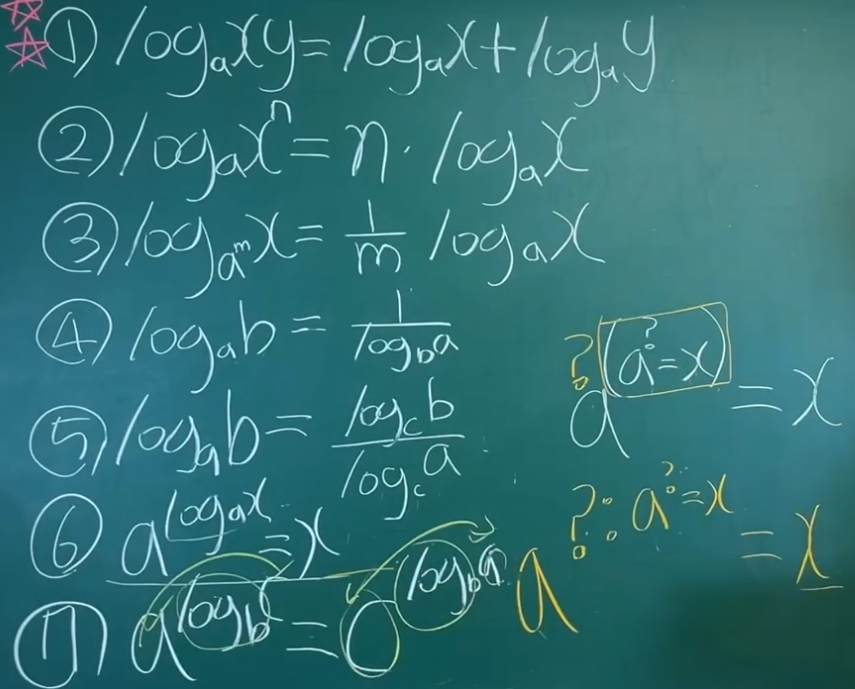 ① logₐxy = logₐx + logₐy
② logₐxⁿ = n · logₐx
③ log_{a^m} x = 1/m logₐx
④ logₐb = 1/log_b a
⑤ logₐb = log_c b / log_c a
⑥ a^{logₐx} = x
⑦ a^{log_b c} = c^{log_b a}
a^{? (a^? = x)} = x
a^{?: a^? = x} = x